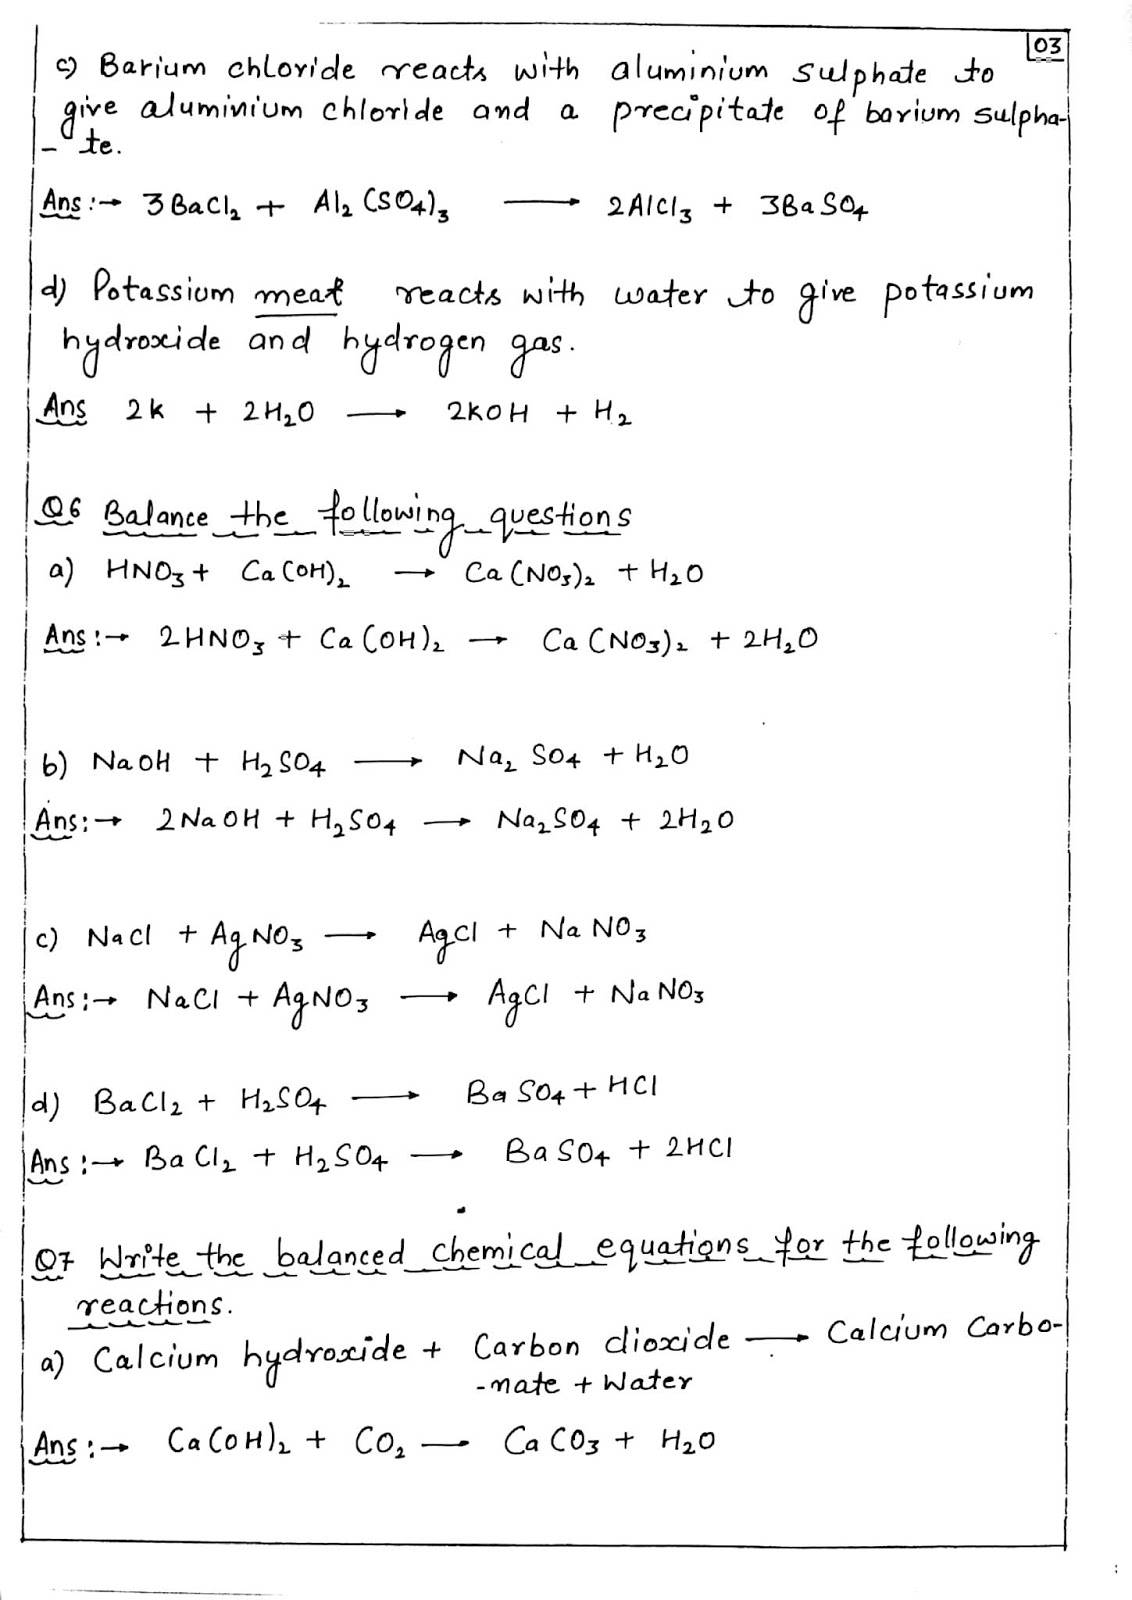 03
c) Barium chloride reacts with aluminium sulphate to
give aluminium chloride and a precipitate of barium sulpha-
- te.
Ans :→ 3BaCl₂ + Al₂(SO₄)₃ → 2AlCl₃ + 3BaSO₄
d) Potassium meat reacts with water to give potassium
hydroxide and hydrogen gas.
Ans 2K + 2H₂O → 2KOH + H₂
Q6 Balance the following questions
a) HNO₃ + Ca(OH)₂ → Ca(NO₃)₂ + H₂O
Ans :→ 2HNO₃ + Ca(OH)₂ → Ca(NO₃)₂ + 2H₂O
b) NaOH + H₂SO₄ → Na₂SO₄ + H₂O
Ans :→ 2NaOH + H₂SO₄ → Na₂SO₄ + 2H₂O
c) NaCl + AgNO₃ → AgCl + NaNO₃
Ans :→ NaCl + AgNO₃ → AgCl + NaNO₃
d) BaCl₂ + H₂SO₄ → BaSO₄ + HCl
Ans :→ BaCl₂ + H₂SO₄ → BaSO₄ + 2HCl
Q7 Write the balanced chemical equations for the following
reactions.
a) Calcium hydroxide + Carbon dioxide → Calcium Carbo-
-nate + Water
Ans :→ Ca(OH)₂ + CO₂ — CaCO₃ + H₂O